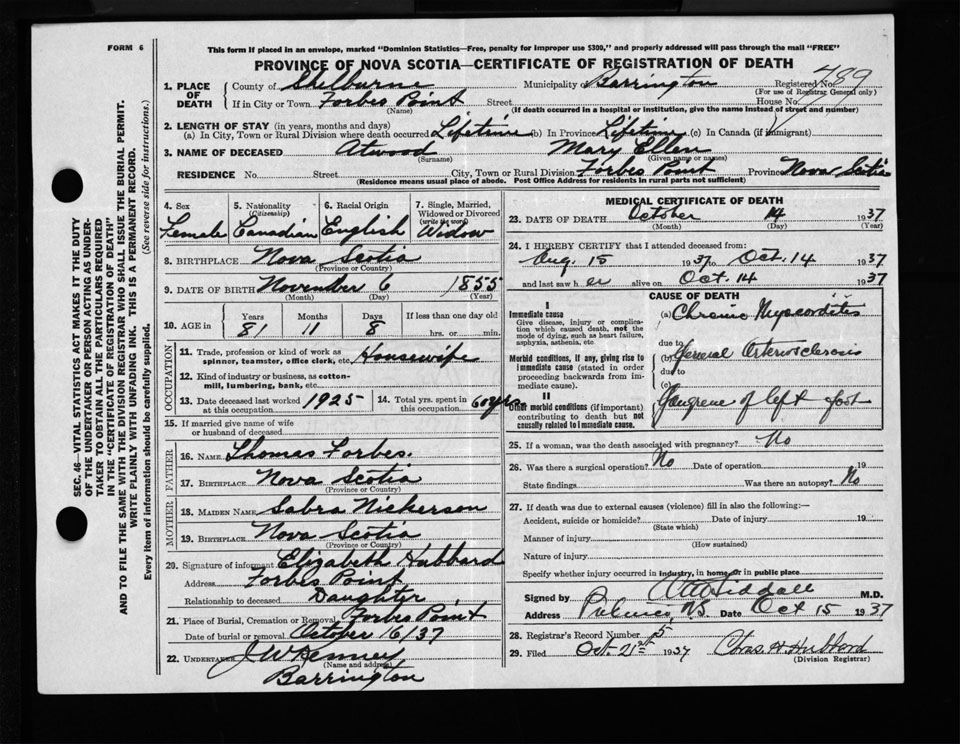 FORM 6
This form if placed in an envelope, marked "Dominion Statistics—Free, penalty for improper use $300," and properly addressed will pass through the mail "FREE"
PROVINCE OF NOVA SCOTIA—CERTIFICATE OF REGISTRATION OF DEATH
1. PLACE OF DEATH County of Shelburne Municipality of Barrington Registered No. 489
(For use of Registrar General only)
If in City or Town Forbes Point Street House No.
(Name) (If death occurred in a hospital or institution, give the name instead of street and number)
2. LENGTH OF STAY (in years, months and days)
(a) In City, Town or Rural Division where death occurred Lifetime (b) In Province Lifetime (c) In Canada (if immigrant)
3. NAME OF DECEASED Atwood Mary Ellen
(Surname) (Given name or names)
RESIDENCE No. Street City, Town or Rural Division Forbes Point Province Nova Scotia
(Residence means usual place of abode. Post Office Address for residents in rural parts not sufficient)
4. Sex Female
5. Nationality (Citizenship) Canadian
6. Racial Origin English
7. Single, Married, Widowed or Divorced (write the word) Widow
8. BIRTHPLACE Nova Scotia
(Province or Country)
9. DATE OF BIRTH November 6 1855
(Month) (Day) (Year)
10. AGE in Years Months Days If less than one day old
81 11 8 hrs. or min.
OCCUPATION
11. Trade, profession or kind of work as spinner, teamster, office clerk, etc. Housewife
12. Kind of industry or business, as cotton-mill, lumbering, bank, etc.
13. Date deceased last worked at this occupation 1925
14. Total yrs. spent in this occupation 60 yrs
15. If married give name of wife or husband of deceased
FATHER
16. NAME Thomas Forbes.
17. BIRTHPLACE Nova Scotia
(Province or Country)
MOTHER
18. MAIDEN NAME Sabra Nickerson
19. BIRTHPLACE Nova Scotia
(Province or Country)
20. Signature of informant Elizabeth Hubbard
Address Forbes Point
Relationship to deceased Daughter
21. Place of Burial, Cremation or Removal Forbes Point
Date of burial or removal October 16/37
22. UNDERTAKER J W Kenney
(Name and address)
Barrington
MEDICAL CERTIFICATE OF DEATH
23. DATE OF DEATH October 14 1937
(Month) (Day) (Year)
24. I HEREBY CERTIFY that I attended deceased from:
Aug. 15 1937 to Oct. 14 1937
and last saw h er alive on Oct. 14 1937
CAUSE OF DEATH
I
Immediate cause
Give disease, injury or complication which caused death, not the mode of dying, such as heart failure, asphyxia, asthenia, etc.
(a) Chronic Myocarditis
due to
Morbid conditions, if any, giving rise to immediate cause (stated in order proceeding backwards from immediate cause).
(b) General Arteriosclerosis
due to
(c)
II
Other morbid conditions (if important) contributing to death but not causally related to immediate cause.
Gangrene of left foot
25. If a woman, was the death associated with pregnancy? No
26. Was there a surgical operation? No Date of operation 19
State findings Was there an autopsy? No
27. If death was due to external causes (violence) fill in also the following:—
Accident, suicide or homicide? Date of injury 19
(State which)
Manner of injury
(How sustained)
Nature of injury
Specify whether injury occurred in industry, in home, or in public place
Signed by Siddall M.D.
Address Pubnico N.S. Date Oct 15 1937
28. Registrar's Record Number 5
29. Filed Oct. 21st 1937 Chas. H. Hubbard
(Division Registrar)
SEC. 46—VITAL STATISTICS ACT MAKES IT THE DUTY
OF THE UNDERTAKER OR PERSON ACTING AS UNDER-
TAKER TO OBTAIN ALL THE PARTICULARS REQUIRED
IN THE "CERTIFICATE OF REGISTRATION OF DEATH"
AND TO FILE THE SAME WITH THE DIVISION REGISTRAR WHO SHALL ISSUE THE BURIAL PERMIT.
WRITE PLAINLY WITH UNFADING INK. THIS IS A PERMANENT RECORD.
Every item of information should be carefully supplied. (See reverse side for instructions.)